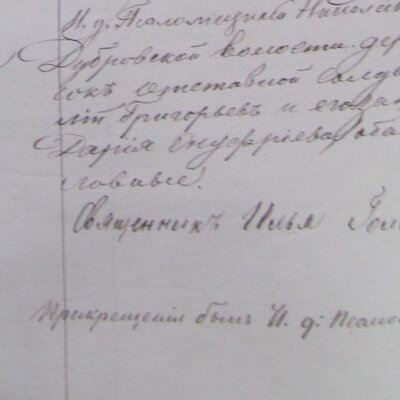 И. д. Псаломщика Никола
Дубровской волости дер
сокъ отставной солда
Григорьевъ и его за
Дарія Онуфріева, оба
славные.
Священникъ Илья Гол
При крещеніи былъ И. д. Псало